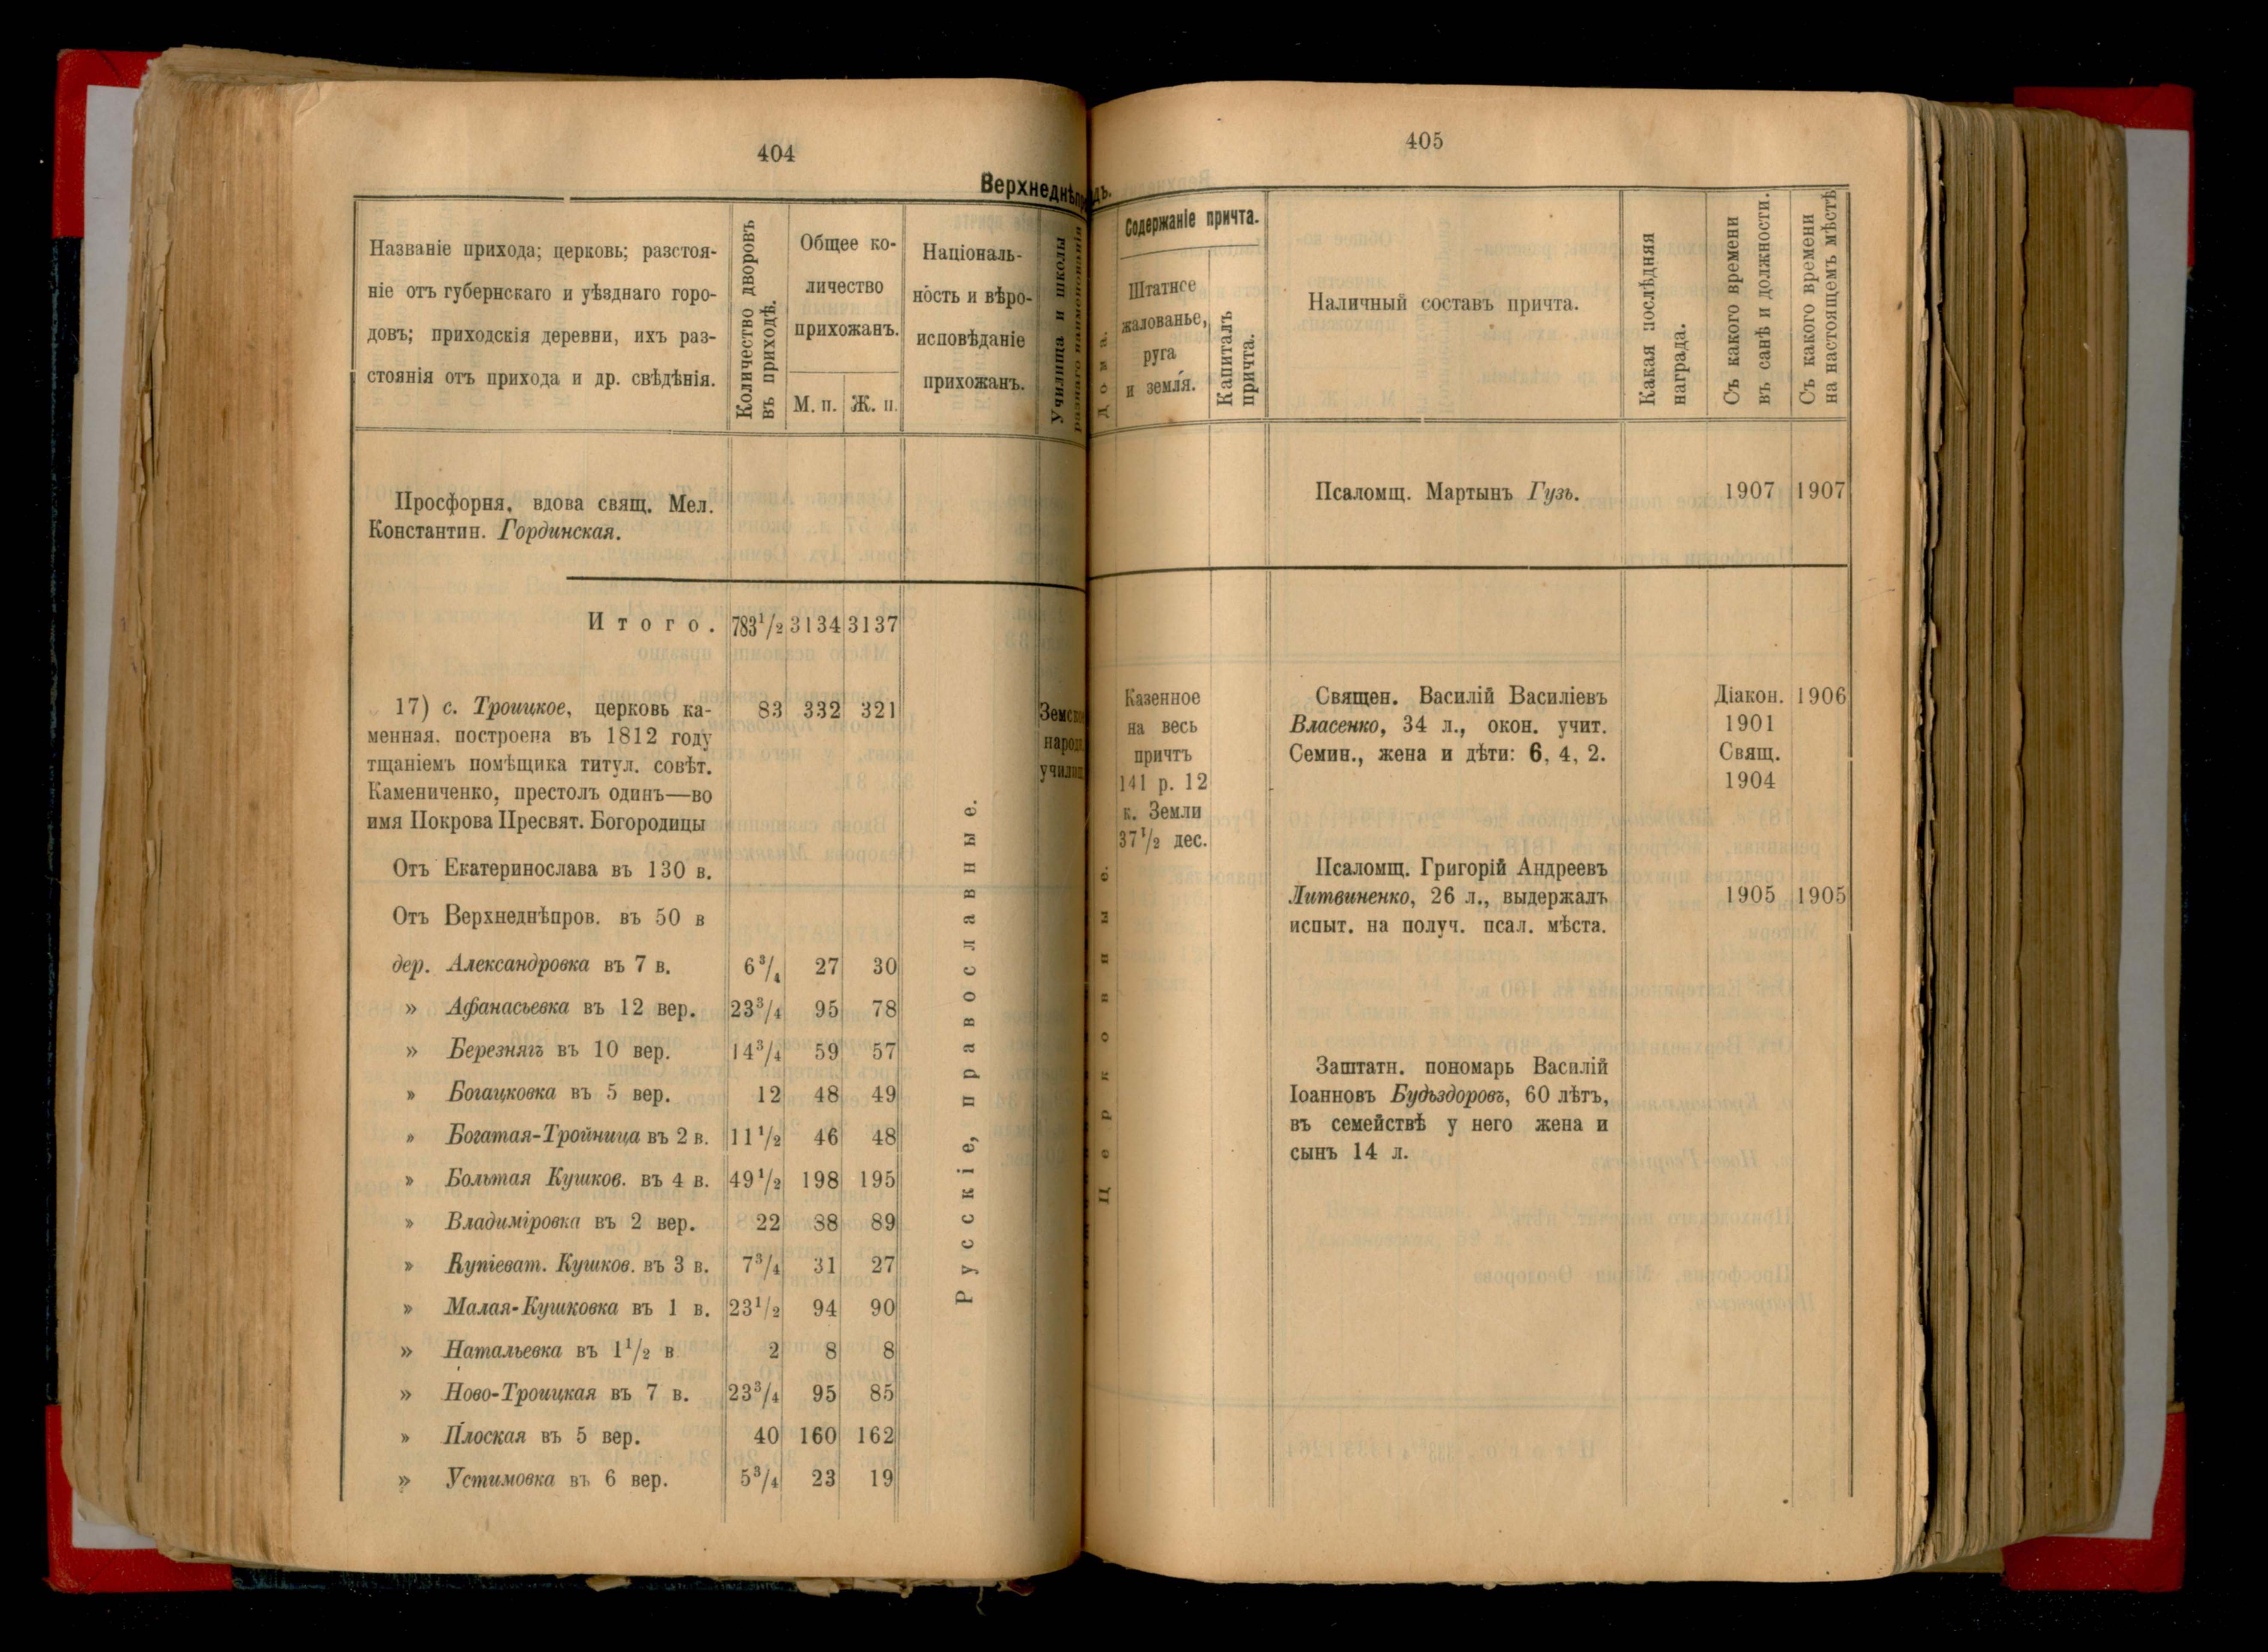 404
Верхнеднѣпр
Названіе прихода; церковь; разстоя-
ніе отъ губернскаго и уѣзднаго горо-
довъ; приходскія деревни, ихъ раз-
стоянія отъ прихода и др. свѣдѣнія.
Количество дворовъ
въ приходѣ.
Общее ко-
личество
прихожанъ.
М. п. Ж. п.
Націоналъ-
ность и вѣро-
исповѣданіе
прихожанъ.
Училища и школы
разнаго наименованія
Просфорня, вдова свящ. Мел.
Константин. Гординская.
Итого. 783 1/2 3134 3137
17) с. Троицкое, церковь ка- 83 332 321
менная. построена въ 1812 году
тщаніемъ помѣщика титул. совѣт.
Камениченко, престолъ одинъ—во
имя Покрова Пресвят. Богородицы
Земское
народ.
училищ
Отъ Екатеринослава въ 130 в.
Отъ Верхнеднѣпров. въ 50 в
дер. Александровка въ 7 в. 6 3/4 27 30
» Афанасьевка въ 12 вер. 23 3/4 95 78
» Березнягъ въ 10 вер. 14 3/4 59 57
» Богацковка въ 5 вер. 12 48 49
» Богатая-Тройница въ 2 в. 11 1/2 46 48
» Больтая Кушков. въ 4 в. 49 1/2 198 195
» Владиміровка въ 2 вер. 22 88 89
» Купіеват. Кушков. въ 3 в. 7 3/4 31 27
» Малая-Кушковка въ 1 в. 23 1/2 94 90
» Натальевка въ 1 1/2 в 2 8 8
» Ново-Троицкая въ 7 в. 23 3/4 95 85
» Плоская въ 5 вер. 40 160 162
» Устимовка въ 6 вер. 5 3/4 23 19
Русскіе, православные.
405
дъ.
Дома.
Содержаніе причта.
Штатнсе
жалованье,
руга
и земля.
Капиталъ
причта.
Наличный составъ причта.
Какая послѣдняя
награда.
Съ какого времени
въ санѣ и должности.
Съ какого времени
на настоящемъ мѣстѣ
Псаломщ. Мартынъ Гузь. 1907 1907
Церковные.
Казенное
на весь
причтъ
141 р. 12
к. Земли
37 1/2 дес.
Священ. Василій Василіевъ Діакон. 1906
Власенко, 34 л., окон. учит. 1901
Семин., жена и дѣти: 6, 4, 2. Свящ.
1904
Псаломщ. Григорій Андреевъ
Литвиненко, 26 л., выдержалъ 1905 1905
испыт. на получ. псал. мѣста.
Заштатн. пономарь Василій
Іоанновъ Будьздоровъ, 60 лѣтъ,
въ семействѣ у него жена и
сынъ 14 л.